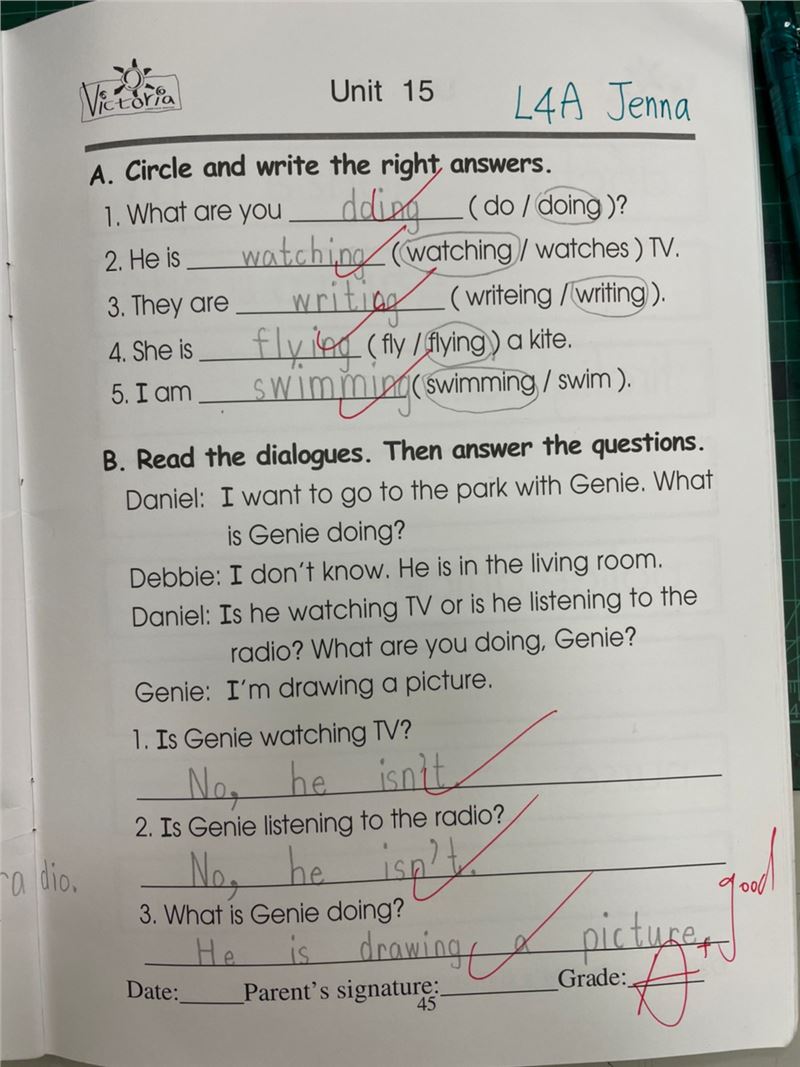 Victoria
Unit 15
L4A Jenna
A. Circle and write the right answers.
1. What are you doing ( do / doing )?
2. He is watching ( watching / watches ) TV.
3. They are writing ( writeing / writing ).
4. She is flying ( fly / flying ) a kite.
5. I am swimming ( swimming / swim ).
B. Read the dialogues. Then answer the questions.
Daniel: I want to go to the park with Genie. What
is Genie doing?
Debbie: I don't know. He is in the living room.
Daniel: Is he watching TV or is he listening to the
radio? What are you doing, Genie?
Genie: I'm drawing a picture.
1. Is Genie watching TV?
No, he isn't.
2. Is Genie listening to the radio?
No, he isn't.
radio.
good
3. What is Genie doing?
He is drawing a picture.
Date: Parent's signature: Grade: A+
45